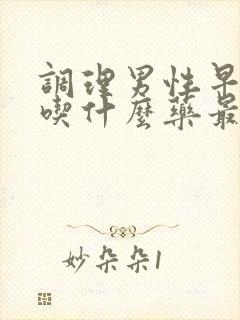 調理男性早
喫什麼藥最
妙朵朵1